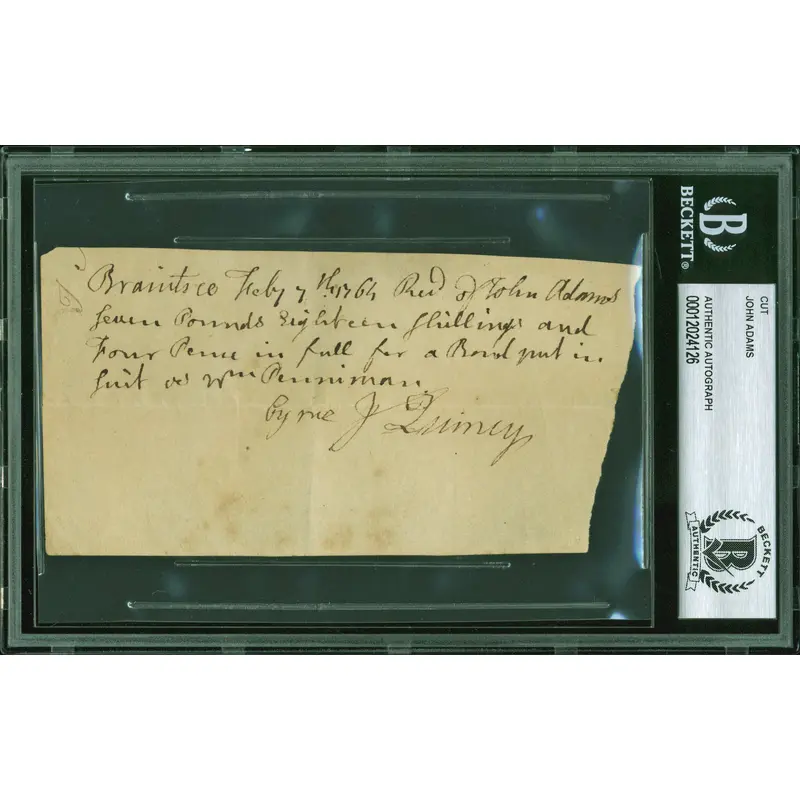 Braintree Feby 7th 1764 Recd of John Adams
Seven Pounds Eighteen Shillings and
Four Pence in full for a Bond put in
Suit vs Wm Penniman
by me J Quincy
BECKETT®
CUT
JOHN ADAMS
AUTHENTIC AUTOGRAPH
00012024126
BECKETT
AUTHENTIC